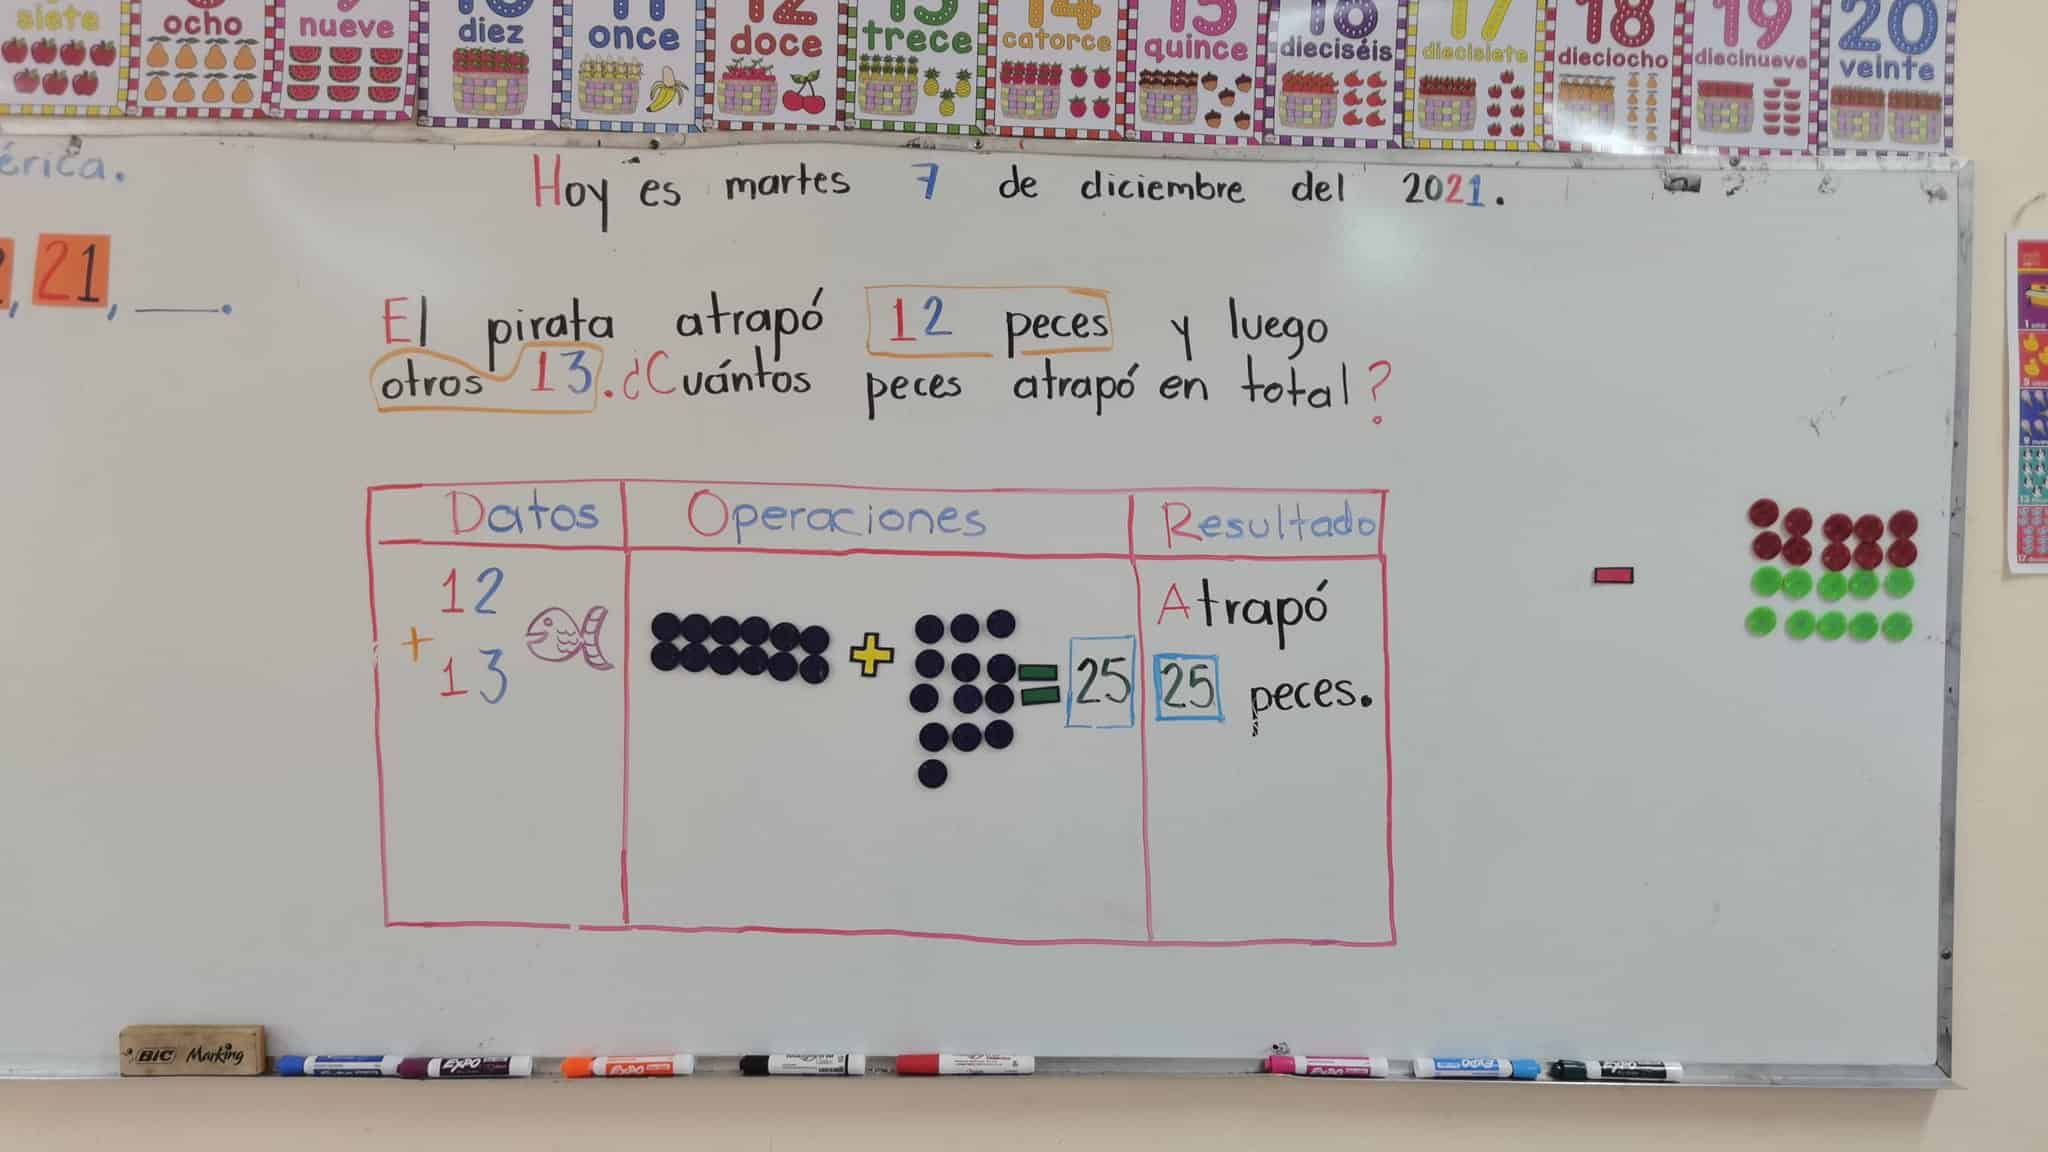 siete
ocho
9
nueve
10
diez
11
once
12
doce
13
trece
14
catorce
15
quince
16
dieciséis
17
diecisiete
18
dieciocho
19
diecinueve
20
veinte
érica.
21, ___.
Hoy es martes 7 de diciembre del 2021.
El pirata atrapó 12 peces y luego
otros 13. ¿Cuántos peces atrapó en total?
Datos Operaciones Resultado
12
+
13
+ = 25
Atrapó
25 peces.
-
BIC Marking
EXPO
EXPO
EXPO
EXPO
EXPO